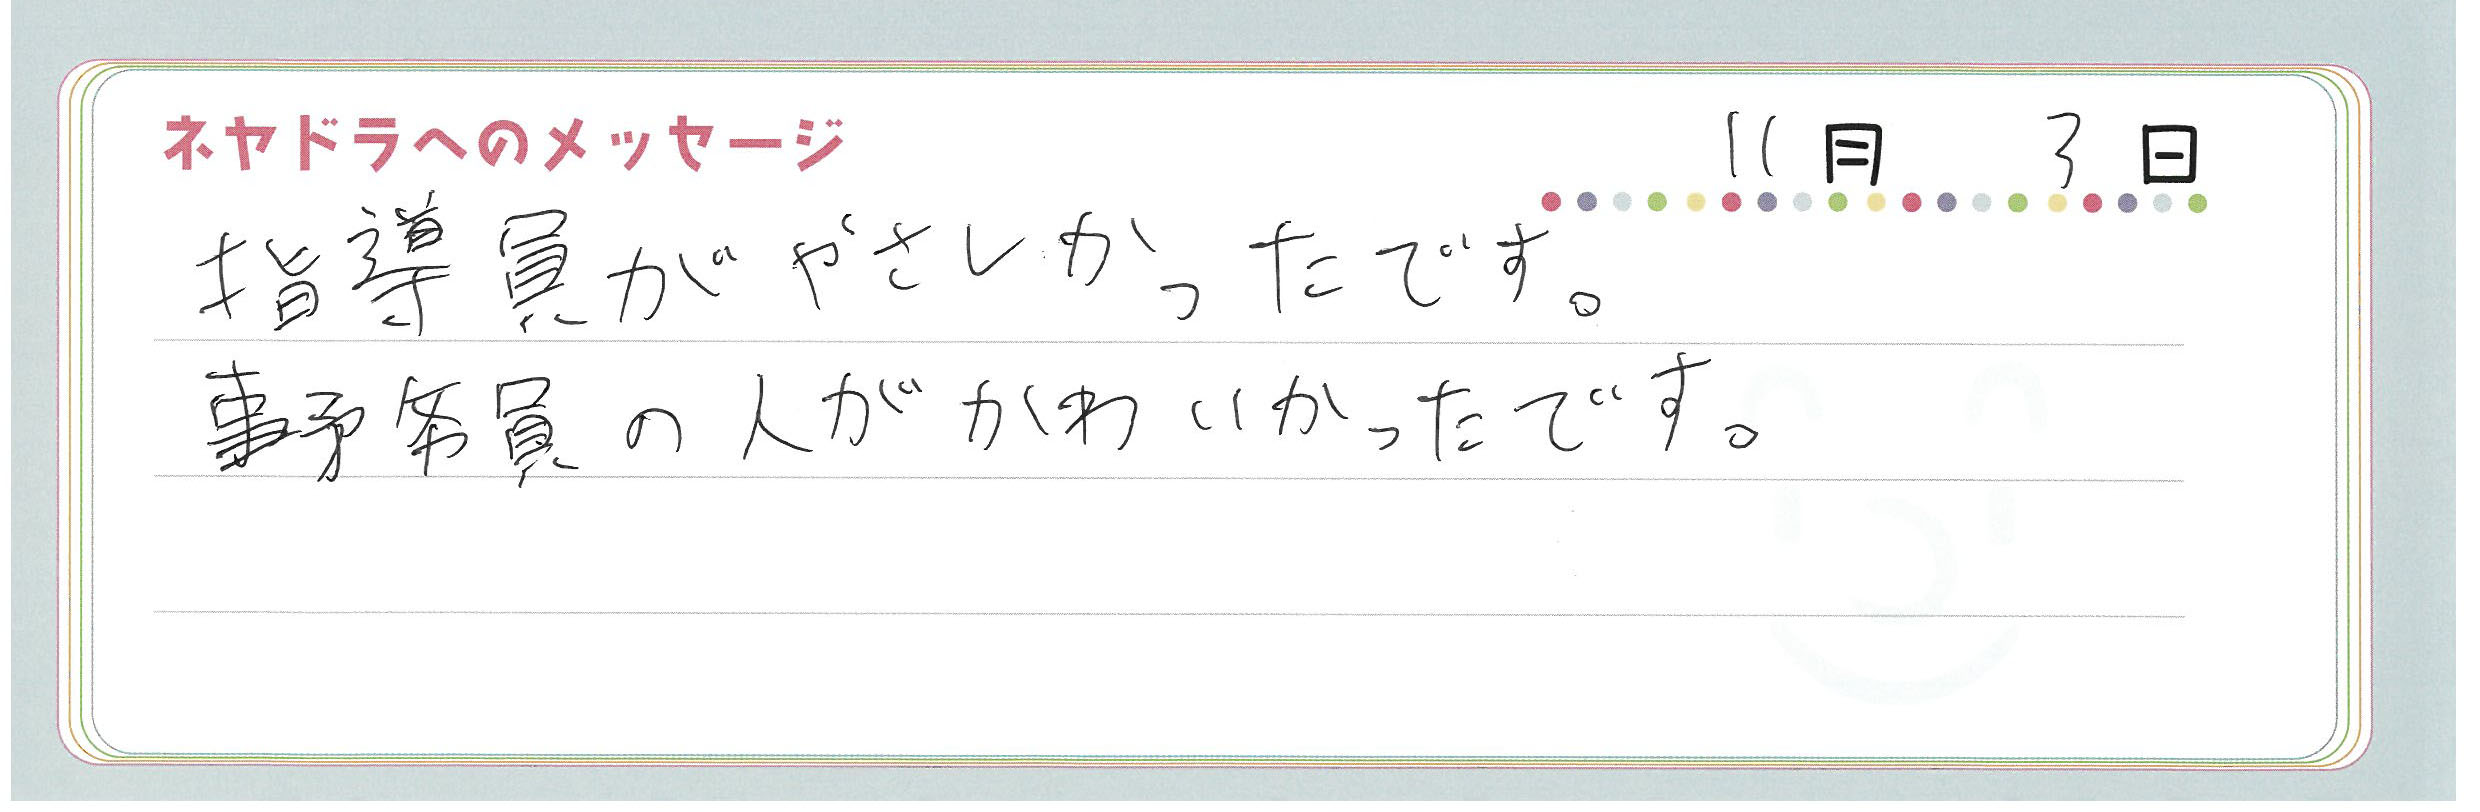 ネヤドラへのメッセージ 11月 3日
指導員がやさしかったです。
事務員の人がかわいかったです。